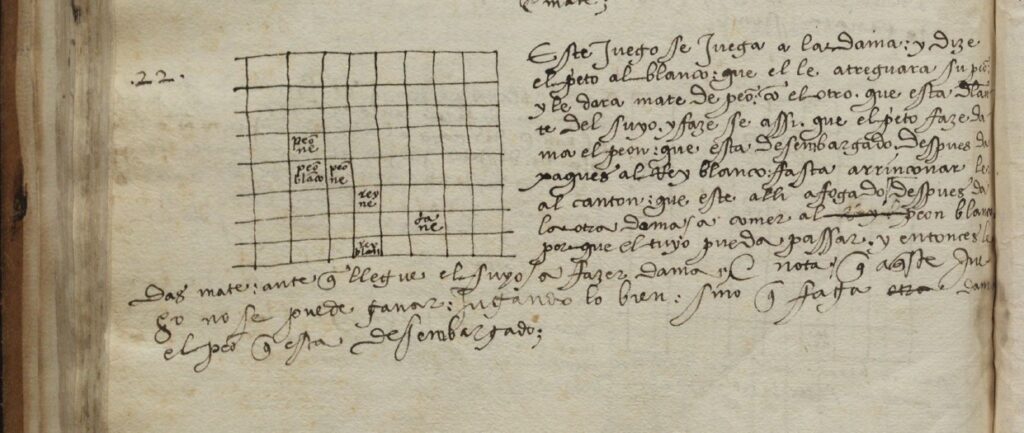 mate;
.22.
Este Juego se Juega a la dama: y dize
el pẽto al blanco: que el le atreguara su peõ:
y le dara mate de peõ: cõ el otro. que esta dlan
te del suyo. y faze se assi. que el pẽto faze da
ma el peon: que esta desembargado. despues da
xaques al Rey blanco: fasta arrinconar le
al canton: que este alli afogado: despues da
la otra dama: a comer al peon blanco
por que el tuyo pueda passar. y entonces le
das mate: ante q̃ llegue el suyo a fazer dama y nota: q̃ aqste Jue
go no se puede ganar: Jugando lo bien: sino q̃ faga otra dama
el peõ q̃ esta desembargado;
peõ
ne
peõ
blãco
peõ
ne
rey
ne
da
ne
rey
blan